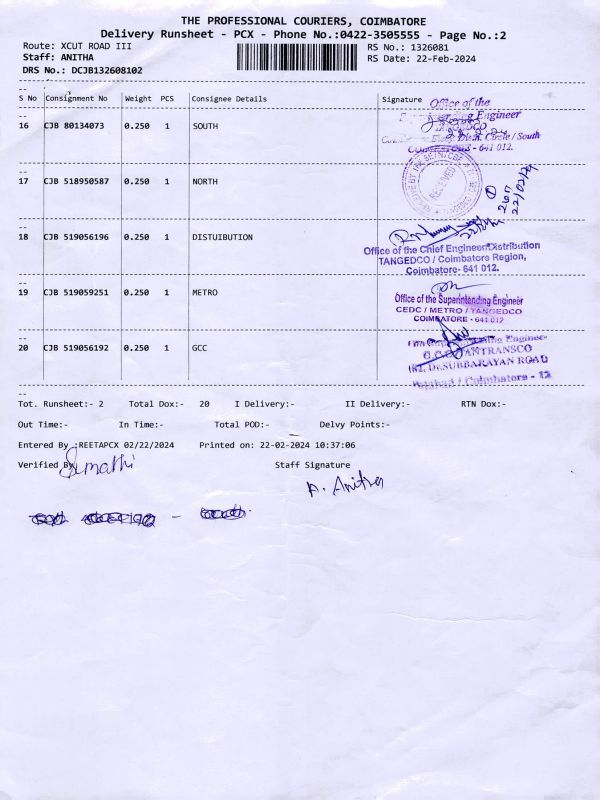 THE PROFESSIONAL COURIERS, COIMBATORE
Delivery Runsheet - PCX - Phone No.:0422-3505555 - Page No.:2
Route: XCUT ROAD III RS No.: 1326081
Staff: ANITHA RS Date: 22-Feb-2024
DRS No.: DCJB132608102
S No Consignment No Weight PCS Consignee Details Signature
Office of the
Engineer
TANGEDCO
16 CJB 80134073 0.250 1 SOUTH
Circle / South
- 641 012.
17 CJB 518950587 0.250 1 NORTH
RECEIVED
22/02/24
18 CJB 519056196 0.250 1 DISTUIBUTION
Office of the Chief Engineer/Distribution
TANGEDCO / Coimbatore Region,
Coimbatore- 641 012.
19 CJB 519059251 0.250 1 METRO
Office of the Superintending Engineer
CEDC / METRO / TANGEDCO
COIMBATORE - 641 012
20 CJB 519056192 0.250 1 GCC
Engineer
TANTRANSCO
182, Dr.SUBBARAYAN ROAD
Tatabad / Coimbatore - 12
Tot. Runsheet:- 2 Total Dox:- 20 I Delivery:- II Delivery:- RTN Dox:-
Out Time:- In Time:- Total POD:- Delvy Points:-
Entered By :REETAPCX 02/22/2024 Printed on: 22-02-2024 10:37:06
Verified By Staff Signature
A. Anitha